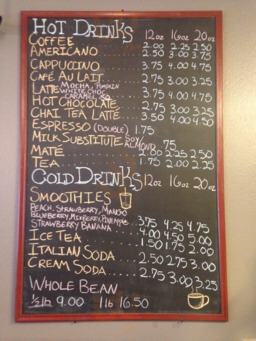 HOT DRINKS 12oz 16oz 20oz
COFFEE........2.00 2.25 2.50
AMERICANO.....2.50 3.00 3.75
CAPPUCCINO....3.75 4.00 4.75
CAFÉ AU LAIT...2.75 3.00 3.25
LATTE MOCHA, PUMPKIN WHITE CHOC, CARAMEL, 3.75 4.00 4.75
HOT CHOCOLATE..2.75 3.00 3.25
CHAI TEA LATTE 3.50 4.00 4.50
ESPRESSO (DOUBLE) 1.75
MILK SUBSTITUTE SOY, .75
MATÉ........2.00 2.25 2.50
TEA.........1.75 2.00 2.25
COLD DRINKS 12oz 16oz 20oz
SMOOTHIES
PEACH, STRAWBERRY, MANGO
BLUEBERRY, MIXED BERRY, PINEAPPLE
STRAWBERRY BANANA 3.75 4.25 4.75
4.00 4.50 5.00
ICE TEA......1.50 1.75 2.00
ITALIAN SODA...2.50 2.75 3.00
CREAM SODA....2.75 3.00 3.25
WHOLE BEAN
½ lb 9.00 1 lb 16.50